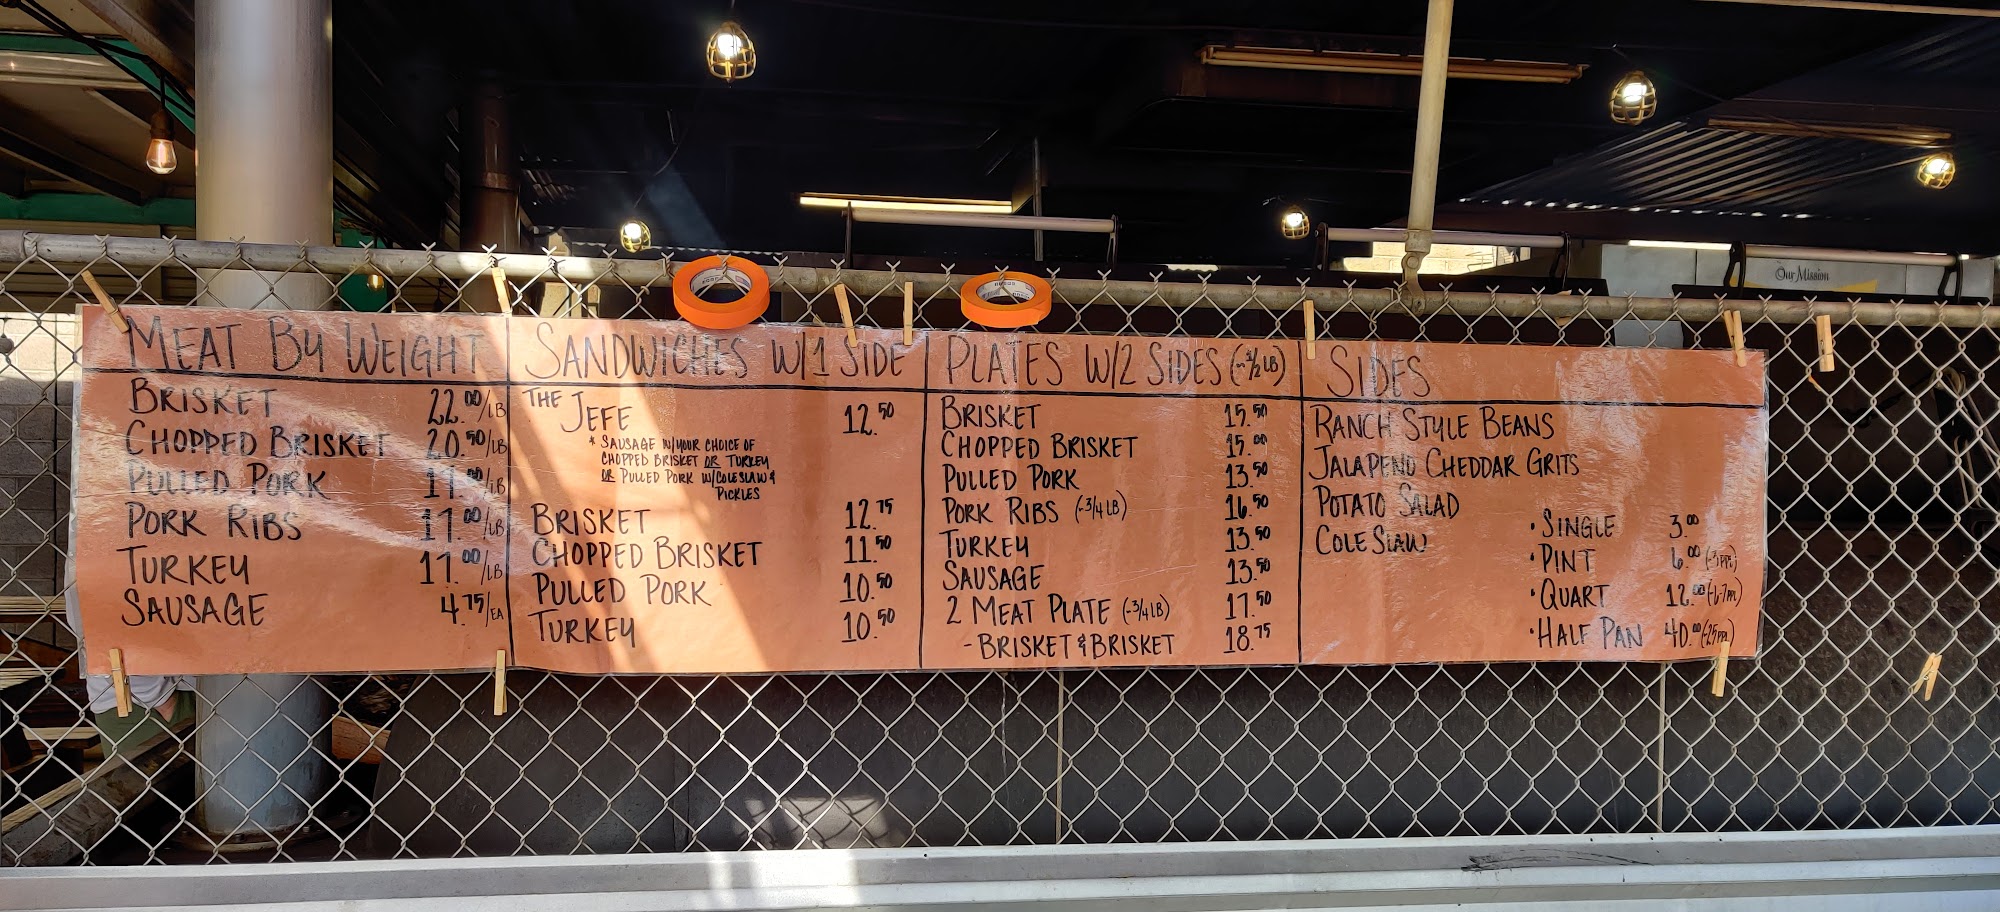 Our Mission
MEAT BY WEIGHT
BRISKET 22.00/LB
CHOPPED BRISKET 20.50/LB
PULLED PORK 17.00/LB
PORK RIBS 17.00/LB
TURKEY 17.00/LB
SAUSAGE 4.75/EA
SANDWICHES W/1 SIDE
THE JEFE 12.50
* SAUSAGE W/YOUR CHOICE OF
CHOPPED BRISKET OR TURKEY
OR PULLED PORK W/COLESLAW &
PICKLES
BRISKET 12.75
CHOPPED BRISKET 11.50
PULLED PORK 10.50
TURKEY 10.50
PLATES W/2 SIDES (~1/2 LB)
BRISKET 15.50
CHOPPED BRISKET 15.00
PULLED PORK 13.50
PORK RIBS (~3/4 LB) 16.50
TURKEY 13.50
SAUSAGE 13.50
2 MEAT PLATE (~3/4 LB) 17.50
- BRISKET & BRISKET 18.75
SIDES
RANCH STYLE BEANS
JALAPENO CHEDDAR GRITS
POTATO SALAD
COLE SLAW
• SINGLE 3.00
• PINT 6.00 (~3 PPL)
• QUART 12.00 (~6-7 PPL)
• HALF PAN 40.00 (~25 PPL)